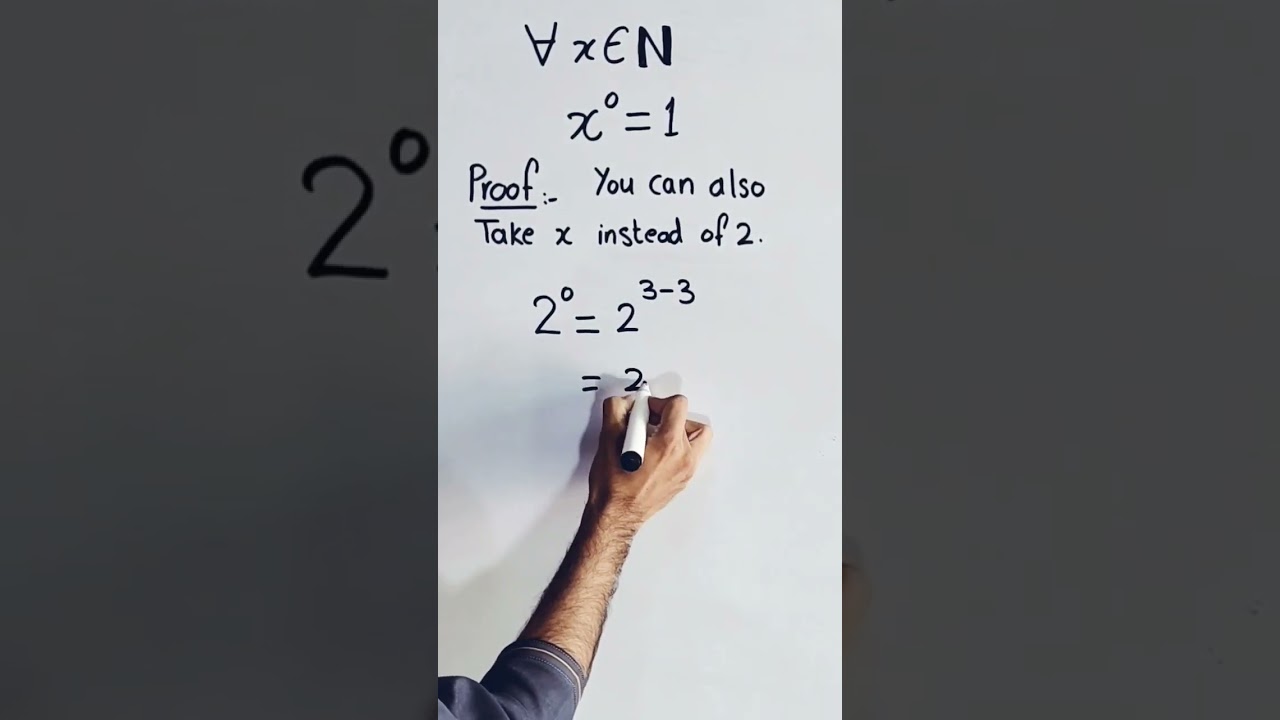 ∀ x ∈ N
x⁰ = 1
Proof :- You can also
Take x instead of 2.
2⁰ = 2³⁻³
= 2
2⁰